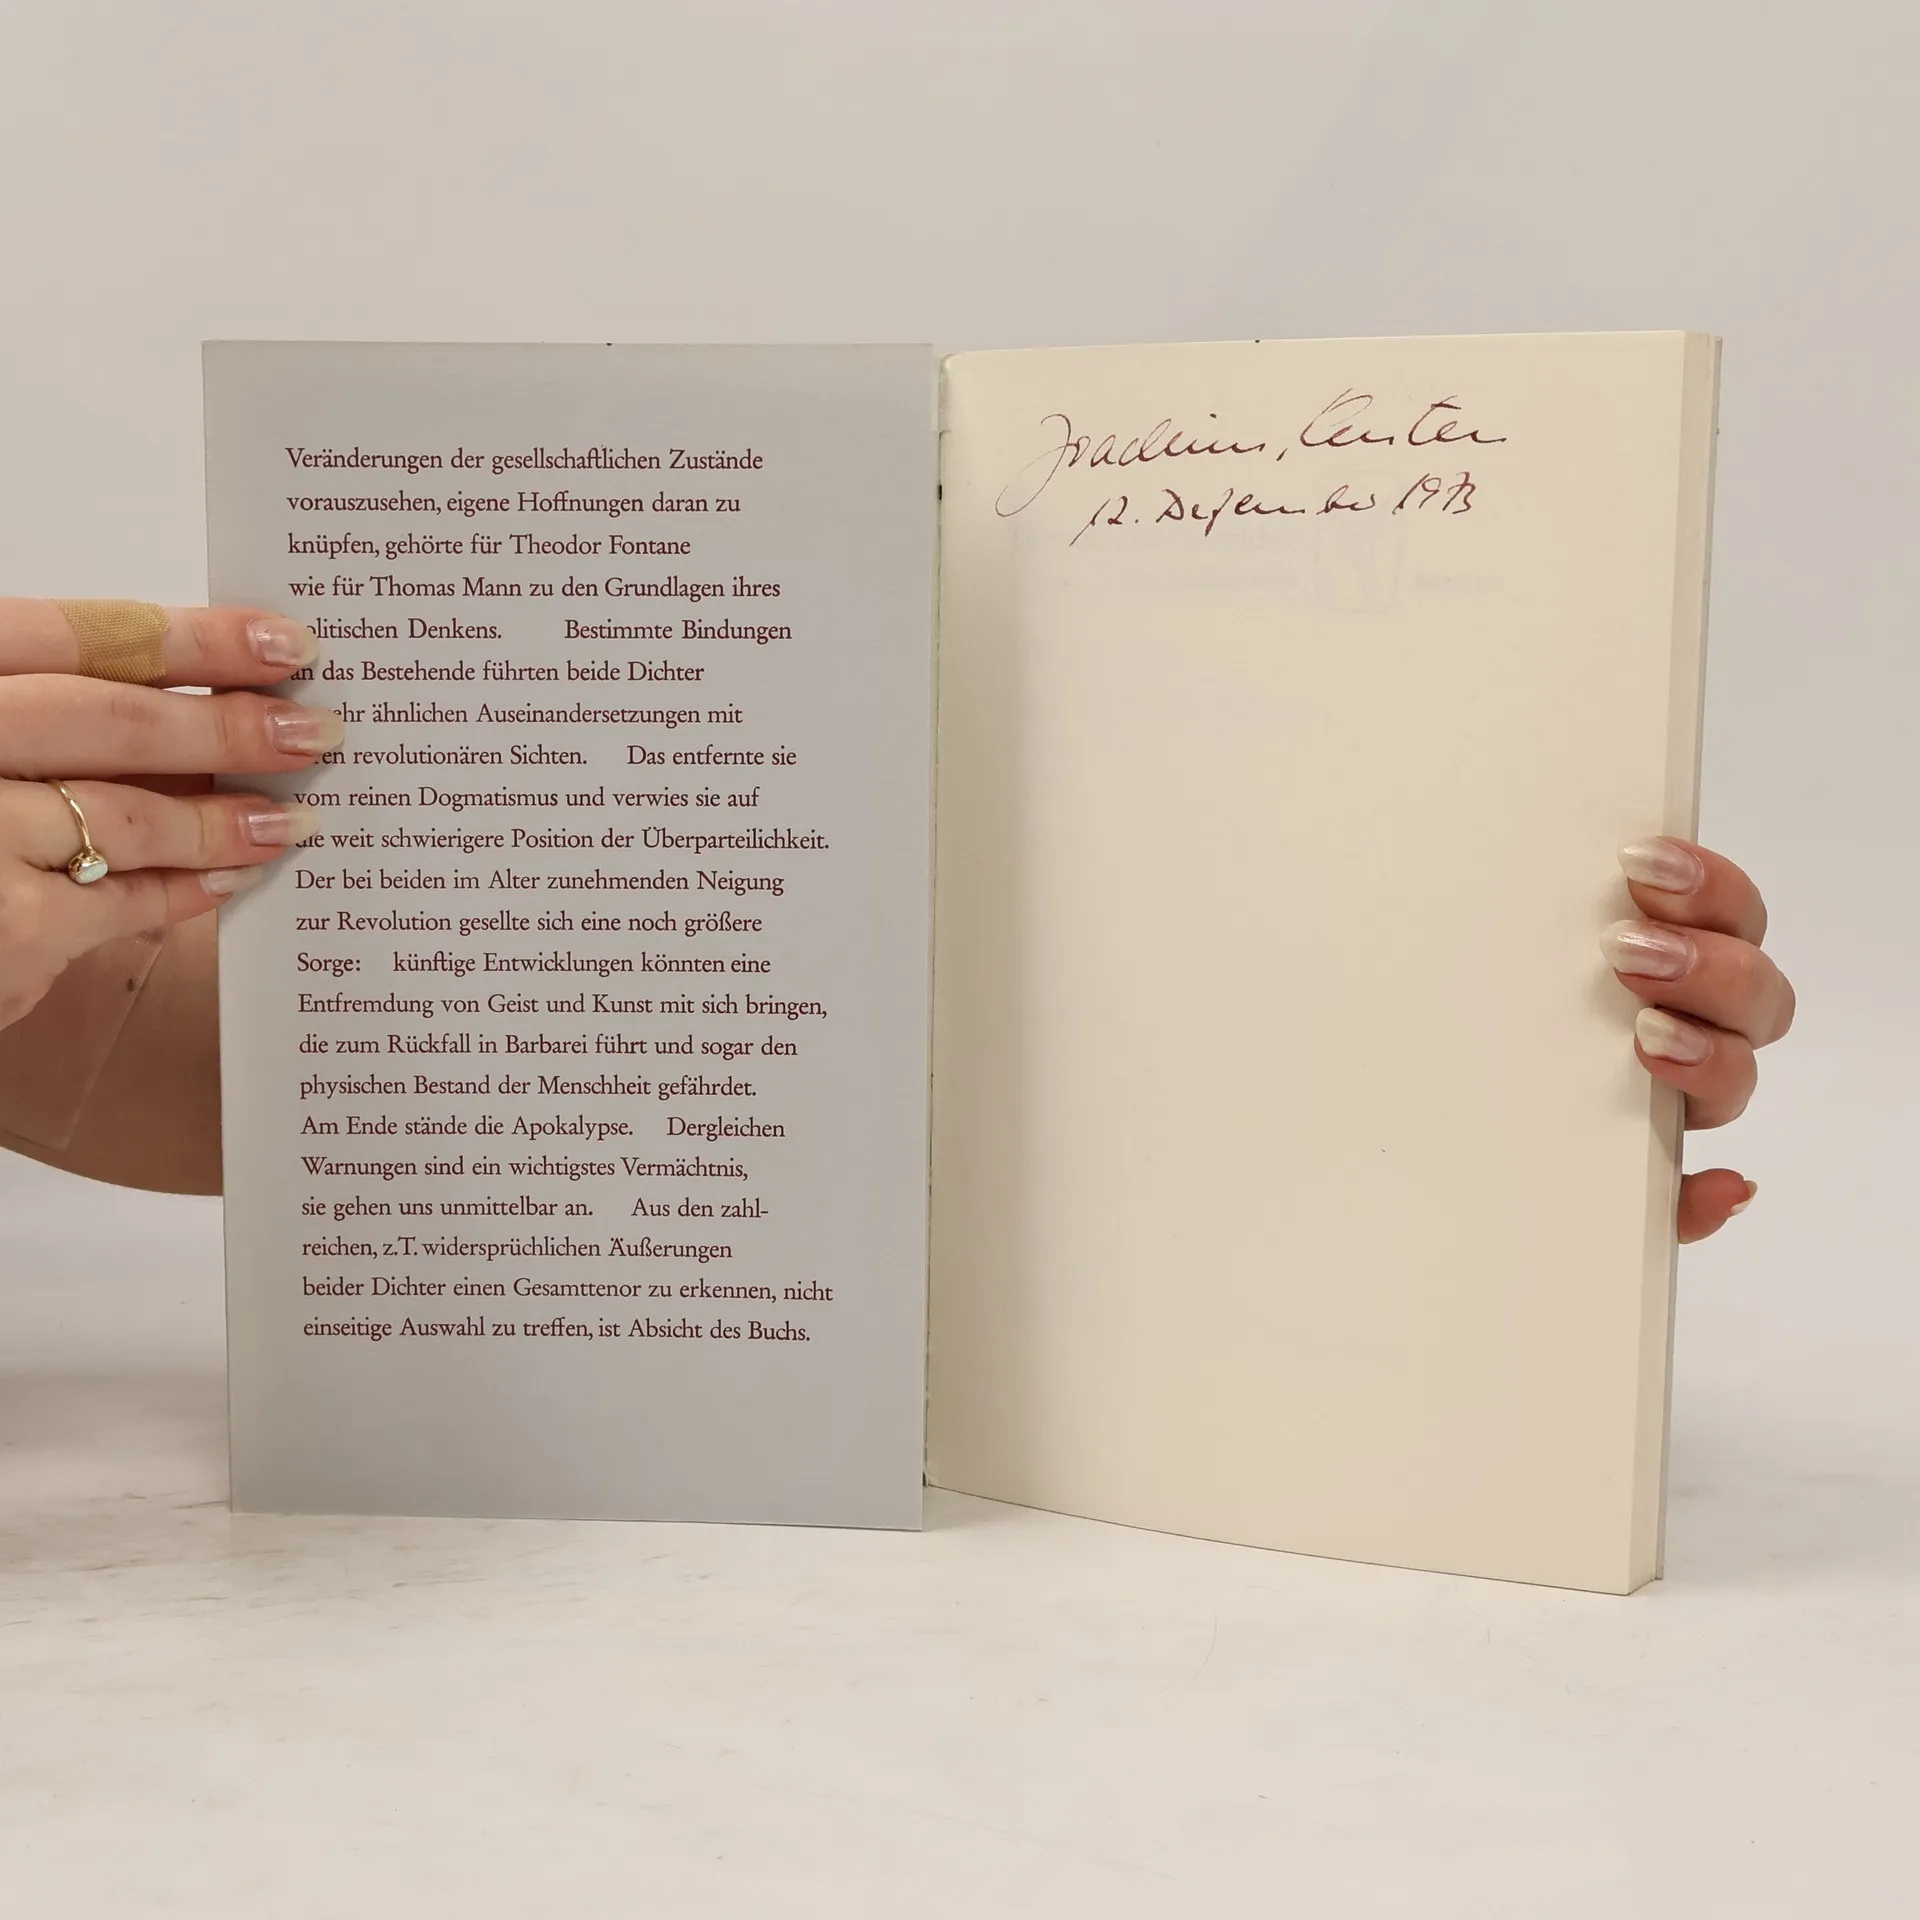 Veränderungen der gesellschaftlichen Zustände
vorauszusehen, eigene Hoffnungen daran zu
knüpfen, gehörte für Theodor Fontane
wie für Thomas Mann zu den Grundlagen ihres
olitischen Denkens. Bestimmte Bindungen
an das Bestehende führten beide Dichter
ehr ähnlichen Auseinandersetzungen mit
ren revolutionären Sichten. Das entfernte sie
vom reinen Dogmatismus und verwies sie auf
die weit schwierigere Position der Überparteilichkeit.
Der bei beiden im Alter zunehmenden Neigung
zur Revolution gesellte sich eine noch größere
Sorge: künftige Entwicklungen könnten eine
Entfremdung von Geist und Kunst mit sich bringen,
die zum Rückfall in Barbarei führt und sogar den
physischen Bestand der Menschheit gefährdet.
Am Ende stände die Apokalypse. Dergleichen
Warnungen sind ein wichtigstes Vermächtnis,
sie gehen uns unmittelbar an. Aus den zahl-
reichen, z.T. widersprüchlichen Äußerungen
beider Dichter einen Gesamttenor zu erkennen, nicht
einseitige Auswahl zu treffen, ist Absicht des Buchs.
Joachim
12. Dezember 1973